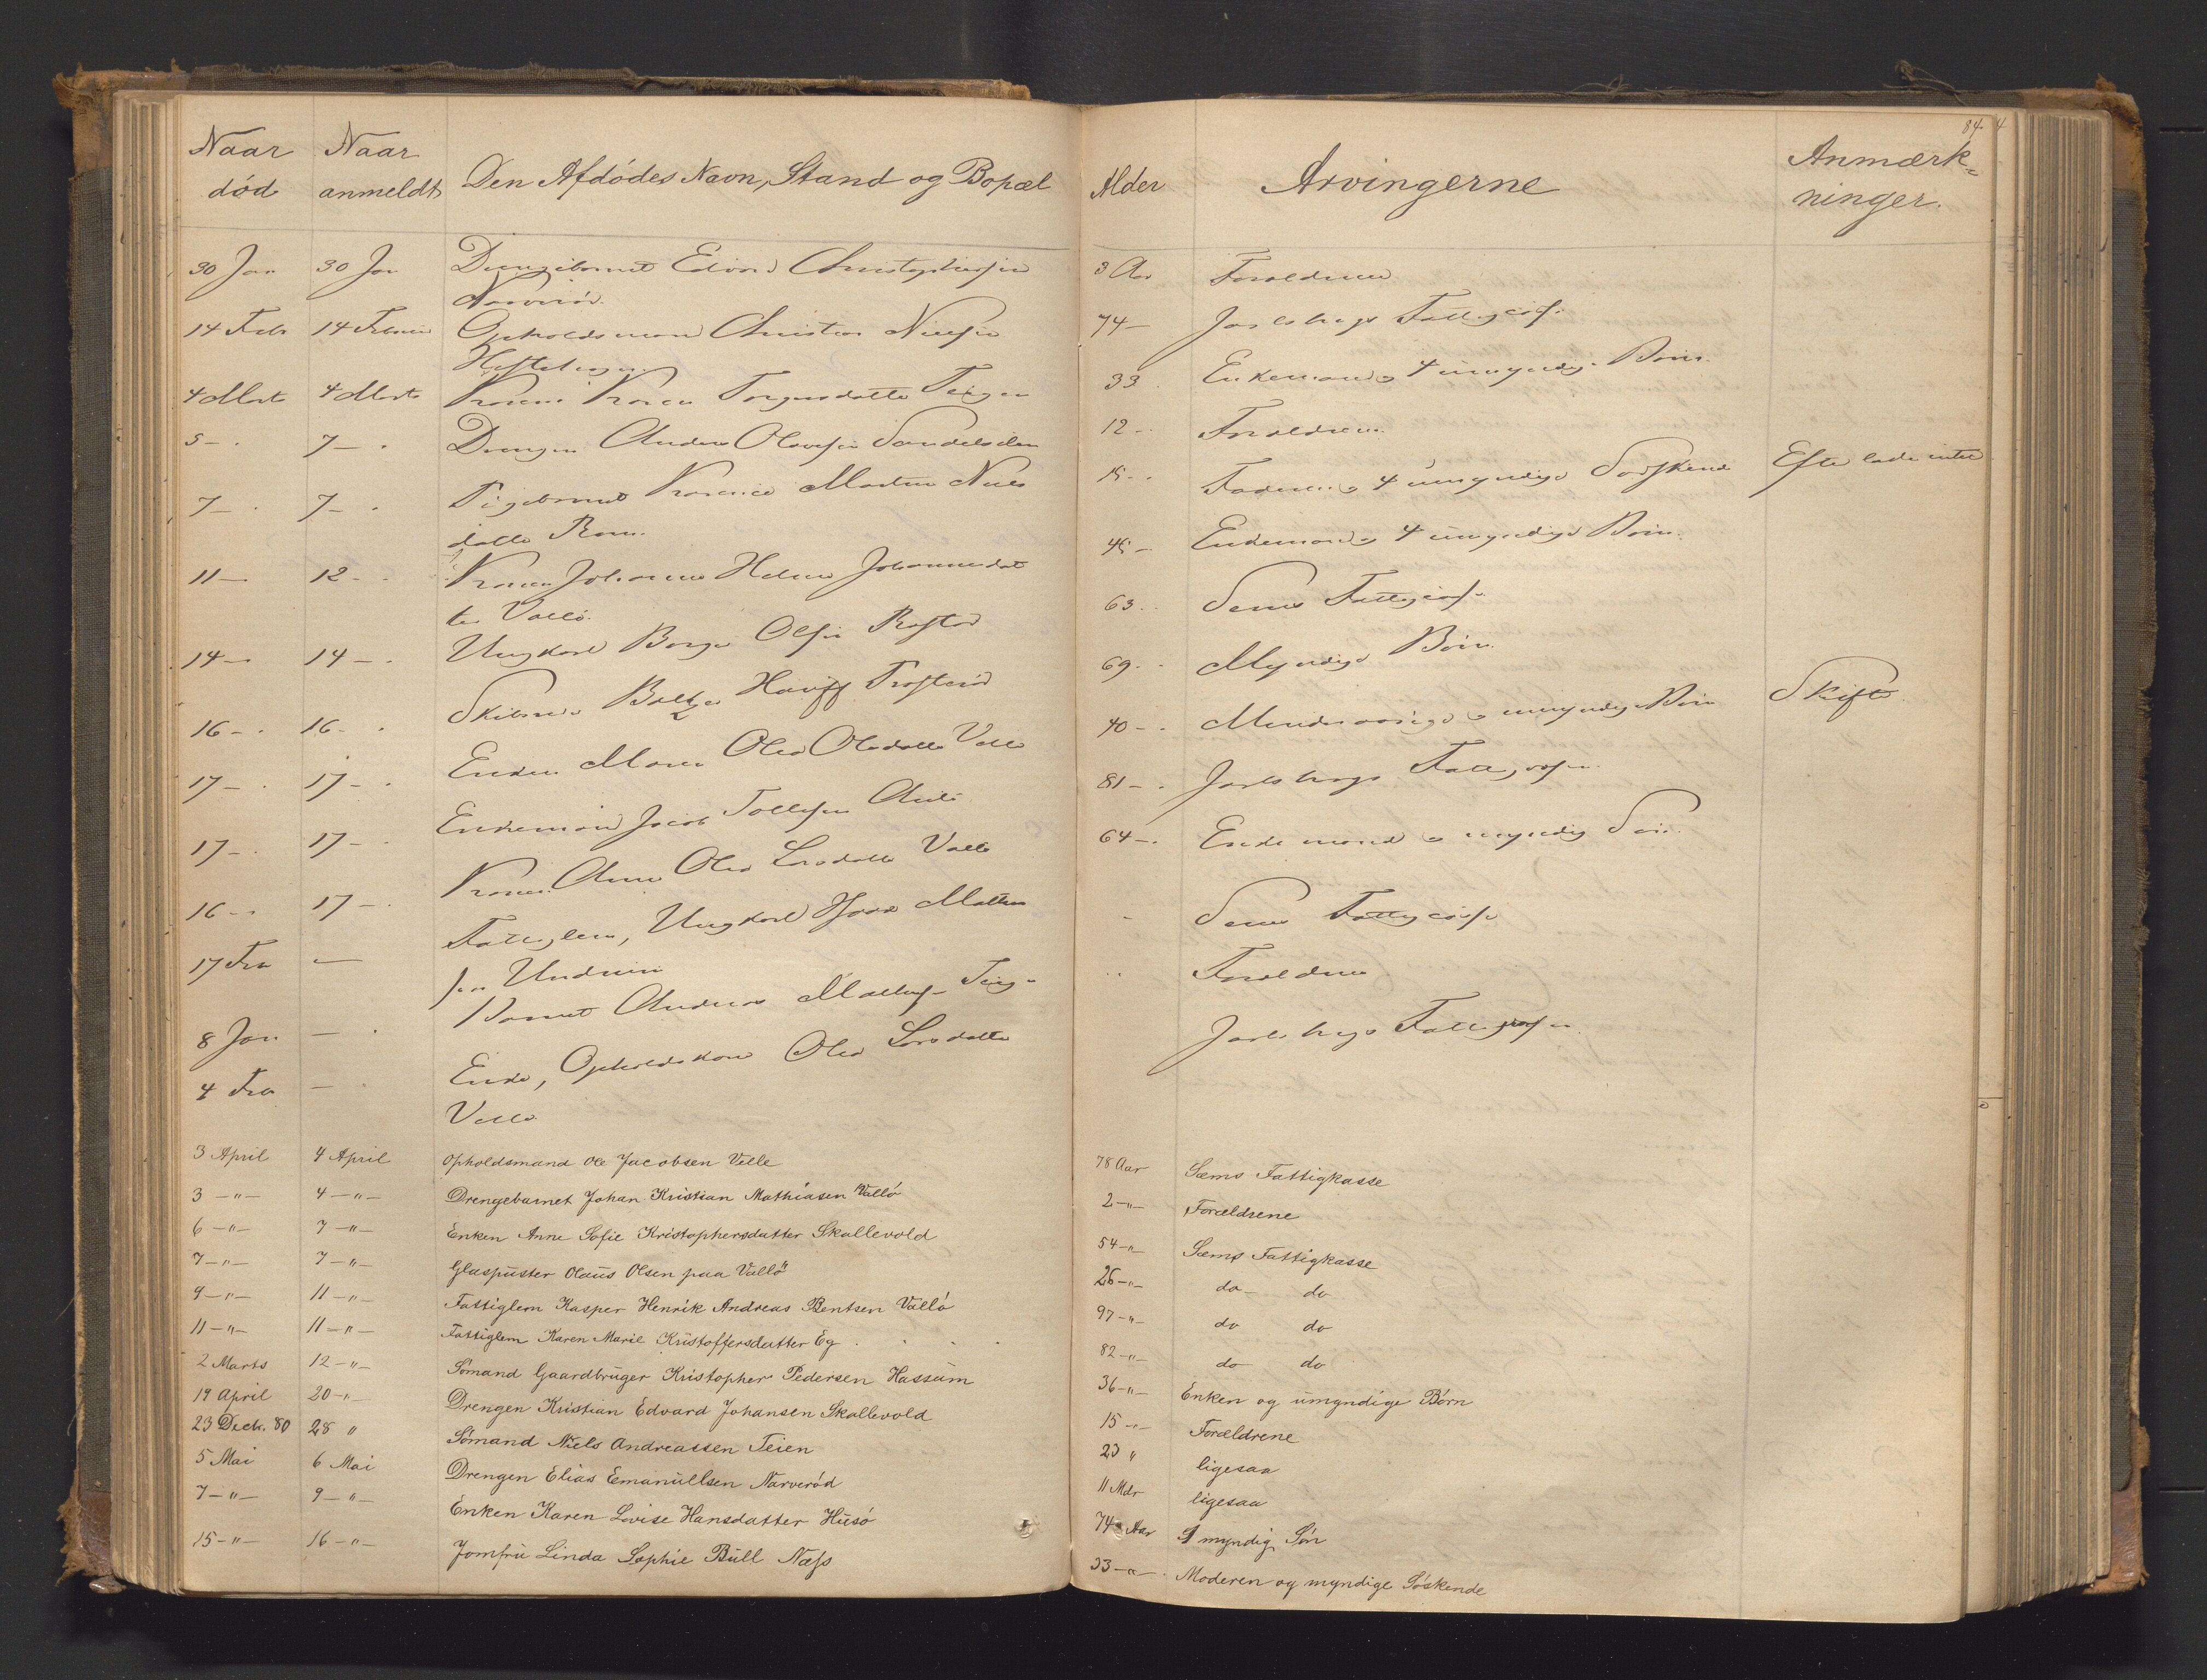 84
Naar død
Naar anmeldt
Den Afdödes Navn, Stand og Bopæl
Alder
Arvingerne
Anmærkninger.
30 Jan 30 Jan Drengebarnet Edvard Christophersen 3 Aar Forældrene
Narverød.
14 Feb 14 Februar Opholdsmand Christen Nielsen 74 – Jarlsbergs Fattigcasse
4 Marts 4 Marts Konen Karen Torgersdatter Teigen 33 Enkemand og 4 umyndige Børn.
5 – 7 – Drengen Anders Olavesen 12 – Forældrene
7 – 7 – Pigebarnet Martine Niels 15 – Faderen og 4 umyndige Sødskende Efterlader intet
datter Rom.
11 – 12 – Konen Johanne Helene Johannesdat 45 – Enkemand og 4 umyndige Børn.
ter Vallø.
14 – 14 – Ungkarl Børge Olsen 63 – Sems Fattigcasse
16 – 16 – 69 – Myndige Børn
17 – 17 – Enken Maren Olea Olsdatter Velle 40 – Mindreaarige og umyndige Børn Skifte
17 – 17 – Enkemand Jacob Tollefsen Auli 81 – Jarlsbergs Fattigcasse
16 – 17 – Konen Anne Olea Larsdatter Valle 64 – Enkemand og myndig Søn
17 Feb — Fattiglem, Ungkarl Mathias – Sems Fattigcasse
sen Undrum
8 Jan — Barnet Andreas Mathis. Teig Forældrene
4 Feb — Enke, Opholdskone Olea Larsdatter Jarlsbergs Fattigcasse
Velle
3 April 4 April Opholdsmand Ole Jacobsen Velle 78 Aar Sæms Fattigkasse
3 –"– 4 –"– Drengebarnet Johan Kristian Mathiasen Vallö 2 –"– Forældrene
6 –"– 7 –"– Enken Anne Sofie Kristophersdatter Skallevold 54 –"– Sæms Fattigkasse
7 –"– 7 –"– Glaspuster Olaus Olsen paa Vallö 26 –"– do do
9 –"– 11 –"– Fattiglem Kasper Henrik Andreas Bentsen Vallö 97 –"– do do
11 –"– 11 –"– Fattiglem Karen Marie Kristoffersdatter Eg 82 –"– do do
2 Marts 12 –"– Sömand Gaardbruger Kristopher Pedersen Hassum 36 –"– Enken og umyndige Börn
19 April 20 –"– Drengen Kristian Edvard Johansen Skallevold 15 –"– Forældrene
23 Decbr. 80 28 " Sömand Niels Andreassen Teien 23 " ligesaa
5 Mai 6 Mai Drengen Elias Emanuelsen Narveröd 11 Mdr ligesaa
7 –"– 9 –"– Enken Karen Lovise Hansdatter Husö 74 Aar 1 myndig Sön
15 –"– 16 –"– Jomfru Linda Sophie Bull Næss 33 –"– Moderen og myndige Söskende